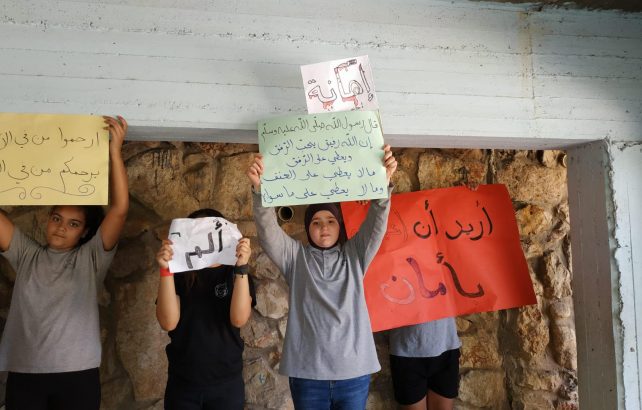 إهانة
ارحموا من في
يرحمكم من في
ألم
قال رسول الله صلى الله عليه وسلم
إن الله رفيق يحب الرفق
ويعطي على الرفق
مالا يعطي على العنف
ومالا يعطي على ما سواه
أريد أن
بأمان